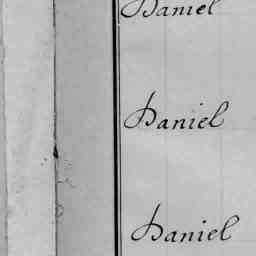 Daniel
Daniel
Daniel